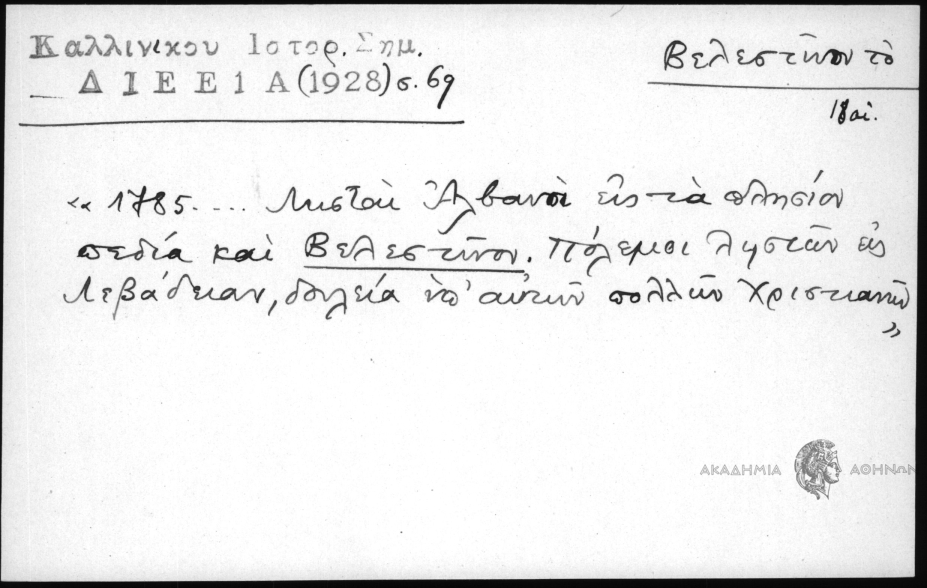 Καλλινίκου Ιστορ. Σημ.
ΔΙΕΕ ΙΑ (1928) σ. 69
Βελεστῖνον τὸ
18 αἰ.
«1785.... Λησταὶ Ἀλβανοὶ εἰς τὰ πλησίον
πεδία καὶ Βελεστῖνον. Πόλεμοι λῃστῶν εἰς
Λεβάδειαν, δουλεία ὑπ' αὐτῶν πολλῶν Χριστιανῶν
»
ΑΚΑΔΗΜΙΑ ΑΘΗΝΩΝ